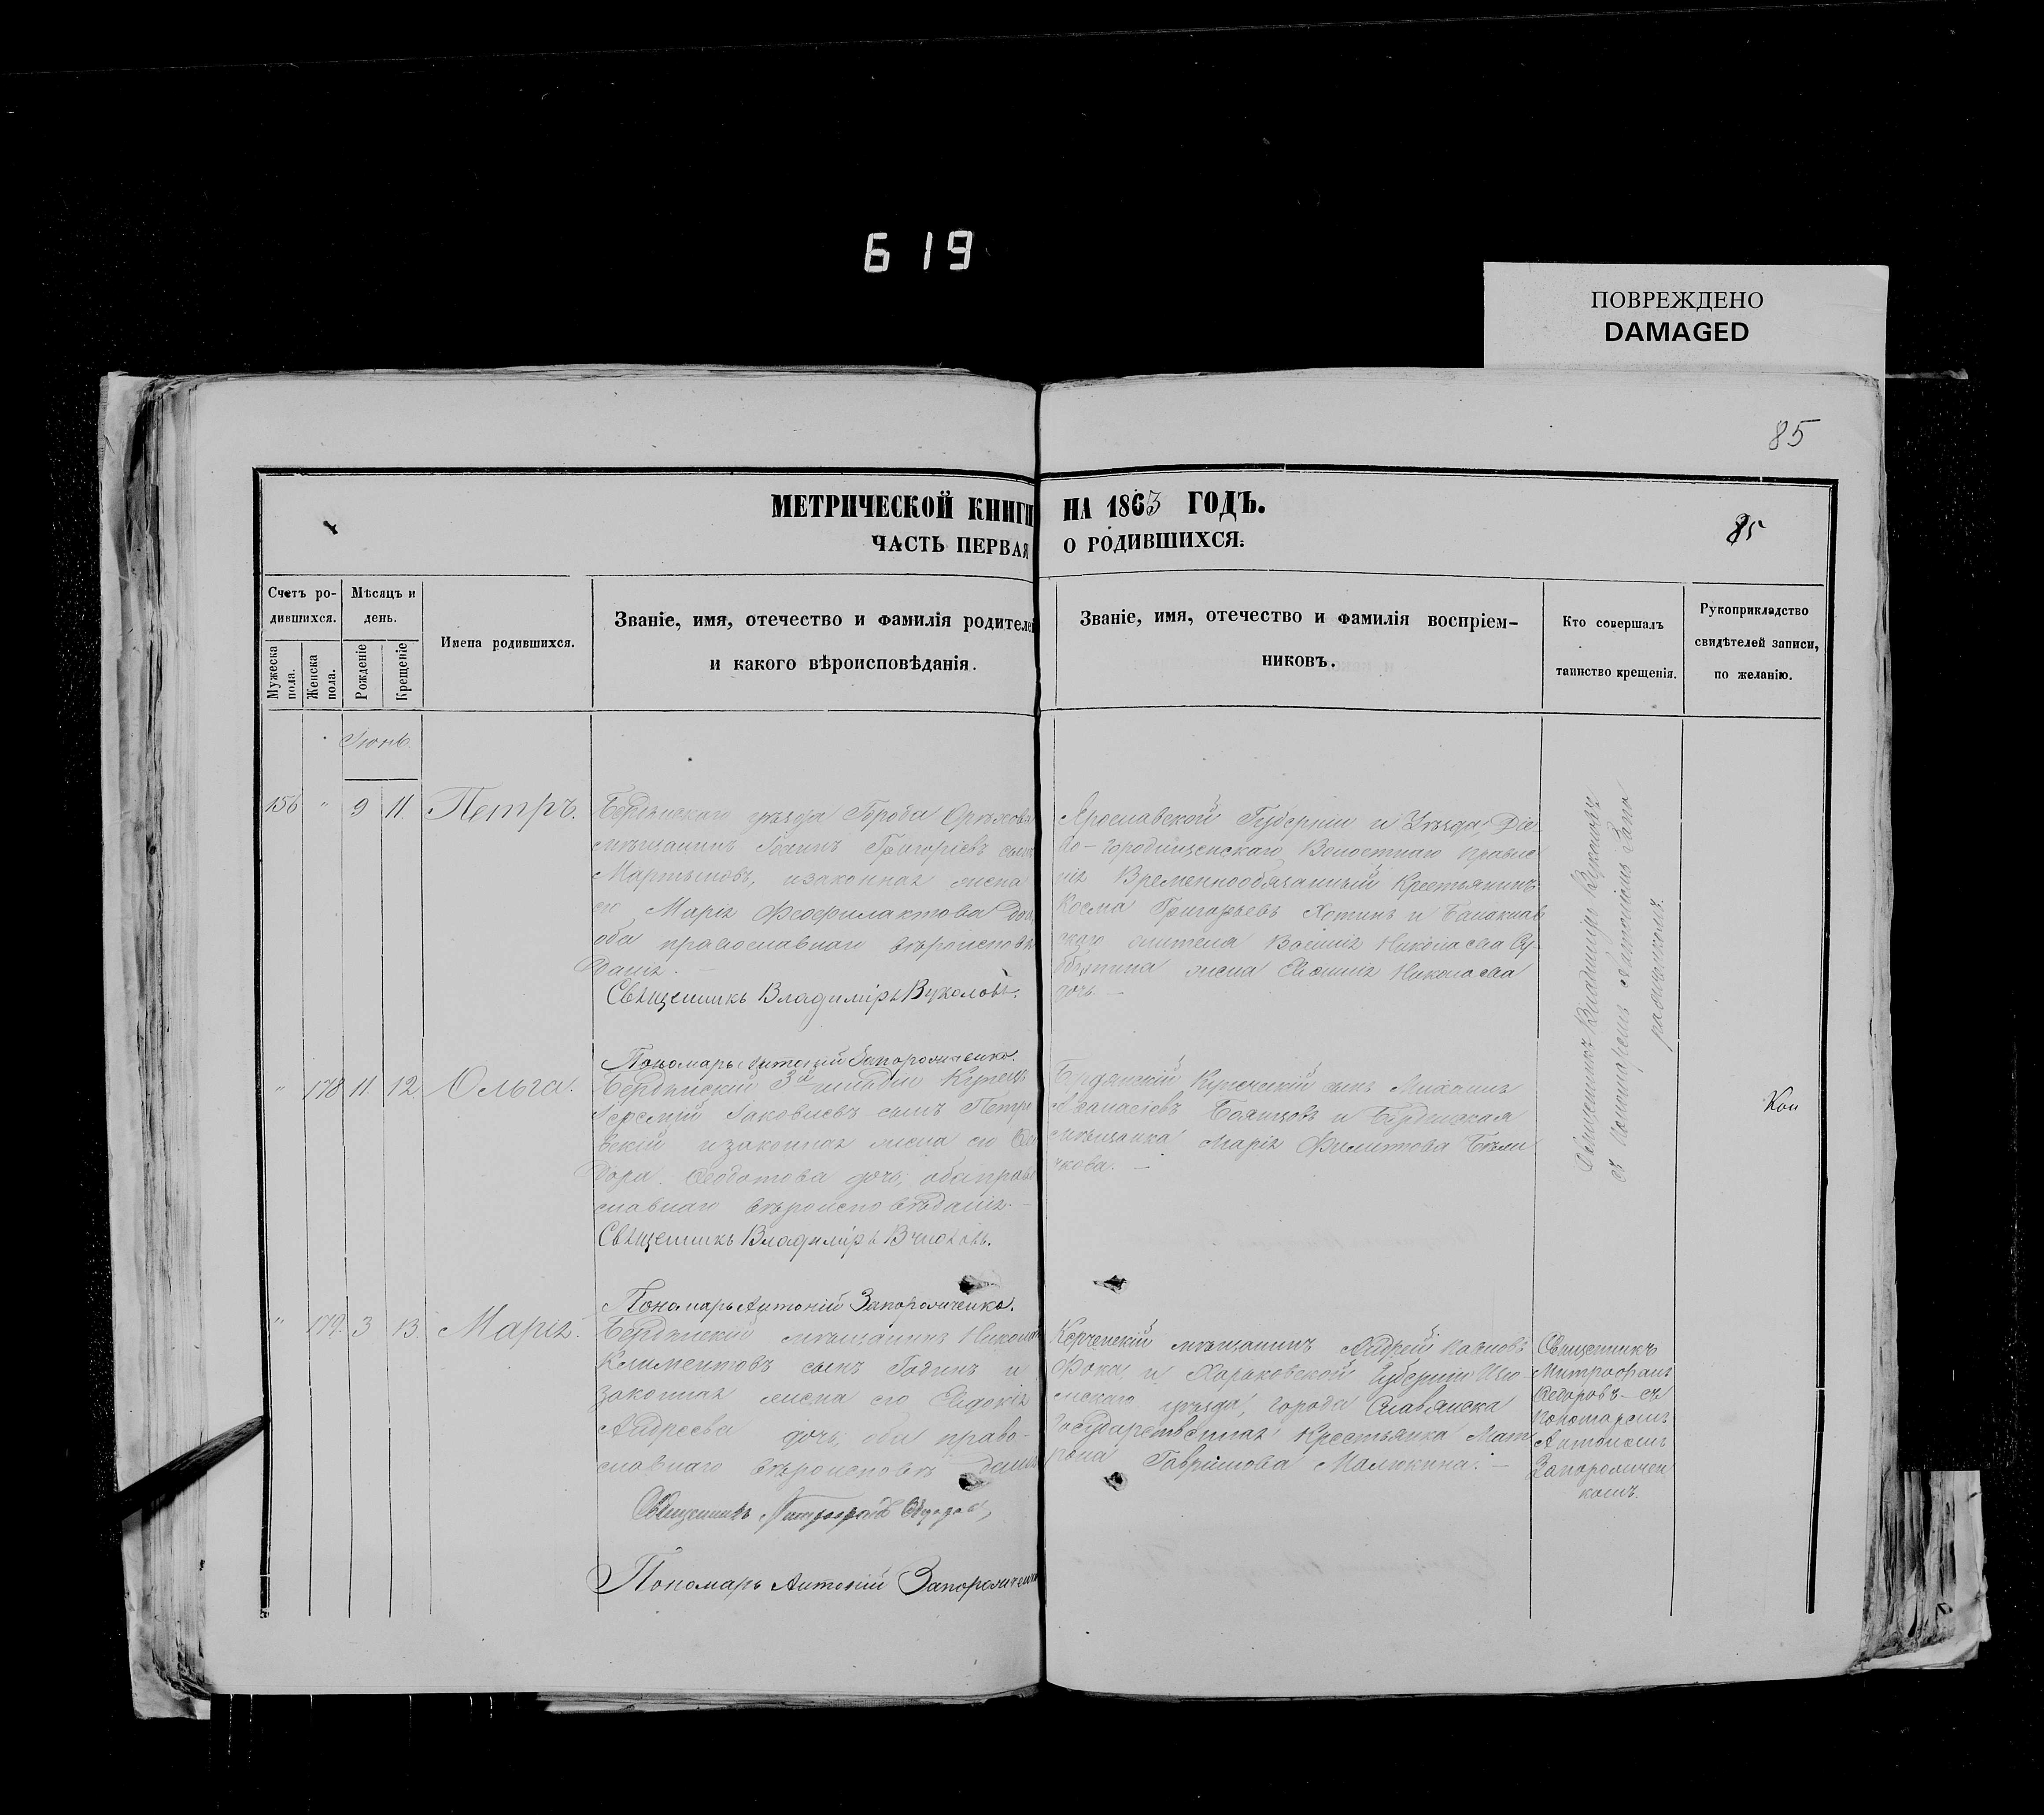 619
ПОВРЕЖДЕНО
DAMAGED
85
МЕТРИЧЕСКОЙ КНИГИ НА 1863 ГОДЪ.
ЧАСТЬ ПЕРВАЯ О РОДИВШИХСЯ.
85
Счетъ ро-
дившихся.
Мужеска
пола.
Женска
пола.
Мѣсяцъ и
день.
Рожденіе
Крещеніе
Имена родившихся.
Званіе, имя, отечество и фамилія родителей
и какого вѣроисповѣданія.
Званіе, имя, отечество и фамилія воспріем-
никовъ.
Кто совершалъ
таинство крещенія.
Рукоприкладство
свидѣтелей записи,
по желанію.
Іюнь.
156 " 9 11. Петръ.
Бердянскаго уѣзда Города Орѣхова
мѣщанинъ Іоаннъ Григоріевъ сынъ
Мартыновъ, и законная жена
его Марія Феофилактова доч
оба православнаго вѣроисповѣ
данія. —
Священникъ Владиміръ Вуколовъ.
Пономарь Антоній Запорожченко.
Ярославской Губерніи и Уѣзда, Діе-
во-Городищенскаго Волостнаго правле
нія Временнообязанный Крестьянинъ
Косма Григорьевъ Хотинъ и Балаклав
скаго жителя Василія Николаева Су-
ботина жена Евфимія Николаева
дочь. —
Священникъ Владиміръ Вуколовъ
съ Пономаремъ Антоніемъ Запо
рожченкомъ.
" 178 11. 12. Ольга.
Бердянскій 3й гильдіи Купецъ
Іеремій Іаковлевъ сынъ Петро
вскій и законная жена его
дора Феодотова дочь, оба право
славнаго вѣроисповѣданія. —
Священникъ Владиміръ Вуколовъ.
Пономарь Антоній Запорожченко.
Бердянскій Купеческій сынъ Михаилъ
Афанасіевъ и Бердянская
мѣщанка Марія Филипова Бѣли
чкова. —
Коп
" 179. 3 13. Марія.
Бердянскій мѣщанинъ Никола
Климентовъ сынъ Годинъ и
законная жена его Евдокія
Андреева дочь, оба право-
славнаго вѣроисповѣданія
Священникъ Митрофанъ Федоровъ,
Пономарь Антоній Запорожченко
Керченскій мѣщанинъ Андрей
Фока, и Харьковской Губерніи Изю-
мскаго уѣзда, города Славянска
Государственная Крестьянка Мат
рона Гавриилова Малюкина. —
Священникъ
Митрофанъ
Федоровъ съ
Пономаремъ
Антоніемъ
Запорожчен
комъ.